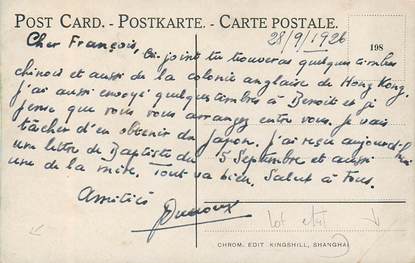 POST CARD. - POSTKARTE. - CARTE POSTALE.
28/9/1926
198
Cher François,
Ci-joint tu trouveras quelques timbres
chinois et aussi de la colonie anglaise de Hong Kong.
j'ai aussi envoyé quelques timbres à Benoit et je
pense que vous vous arrangez entre vous. Je vais
tâcher d'en obtenir du Japon. J'ai reçu aujourd'hui
une lettre de Baptiste du 5 Septembre et aussi
une de la mère. Tout va bien. Salut à Tous.
Amitiés
CHROM. EDIT. KINGSHILL, SHANGHAI